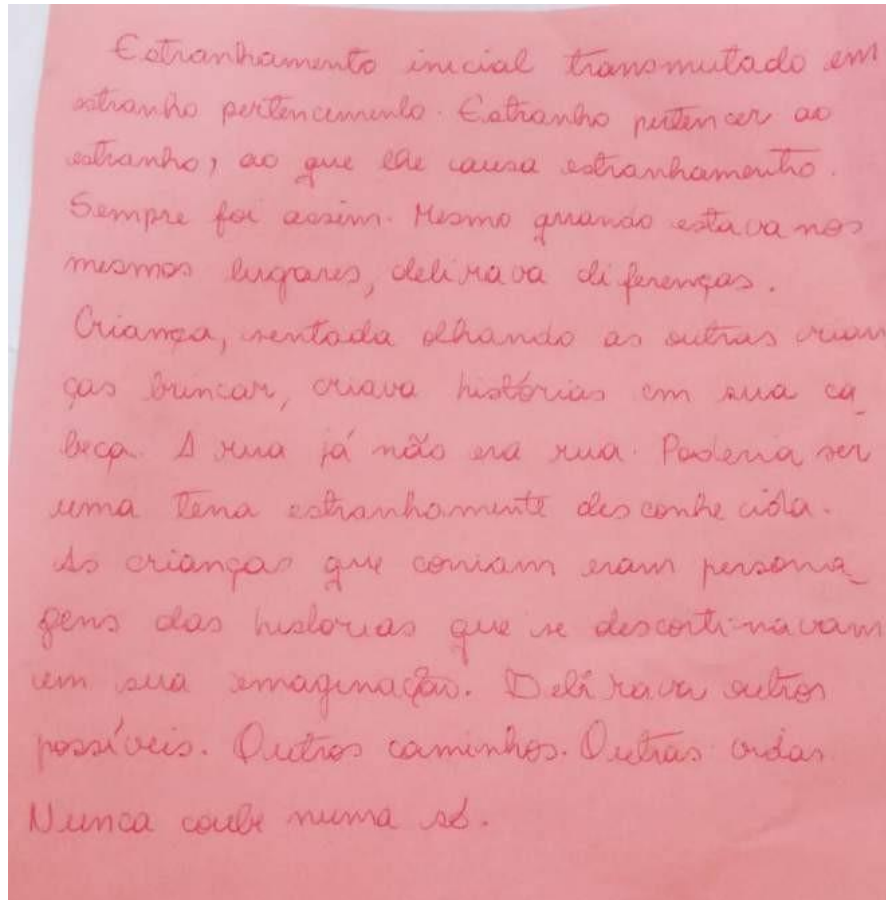 Estranhamento inicial transmutado em
estranho pertencimento. Estranho pertencer ao
estranho, ao que lhe causa estranhamento.
Sempre foi assim. Mesmo quando estava nos
mesmos lugares, delirava diferenças.
Criança, sentada olhando as outras crian
ças brincar, criava histórias em sua ca_
beça. A rua já não era rua. Poderia ser
uma terra estranhamente desconhecida.
As crianças que corriam eram persona_
gens das histórias que se descortinavam
em sua imaginação. Delirava outros
possíveis. Outros caminhos. Outras vidas
Nunca coube numa só.